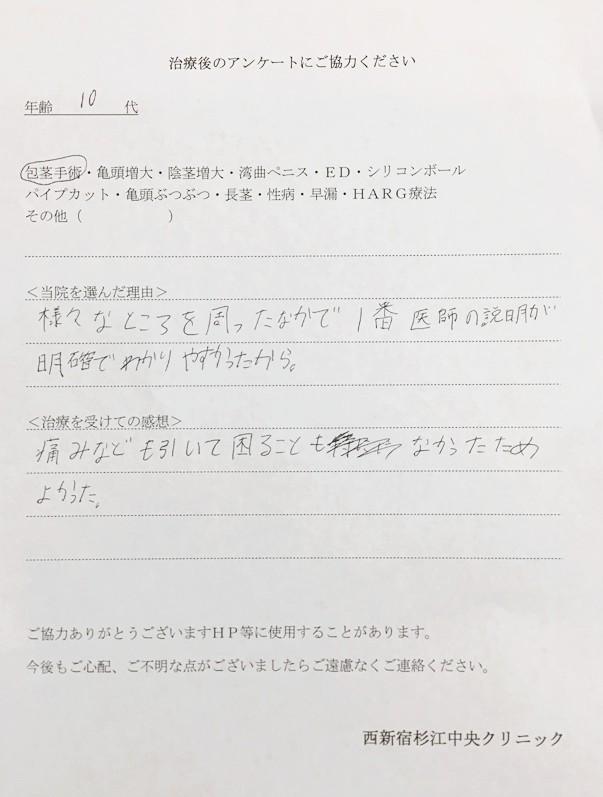 治療後のアンケートにご協力ください
年齢 10 代
包茎手術・亀頭増大・陰茎増大・湾曲ペニス・ＥＤ・シリコンボール
パイプカット・亀頭ぶつぶつ・長茎・性病・早漏・ＨＡＲＧ療法
その他（　　　　　　）
＜当院を選んだ理由＞
様々なところを周ったなかで1番医師の説明が
明確でわかりやすかったから。
＜治療を受けての感想＞
痛みなども引いて困ることも なかったため
よかった。
ご協力ありがとうございますＨＰ等に使用することがあります。
今後もご心配、ご不明な点がございましたらご遠慮なくご連絡ください。
西新宿杉江中央クリニック